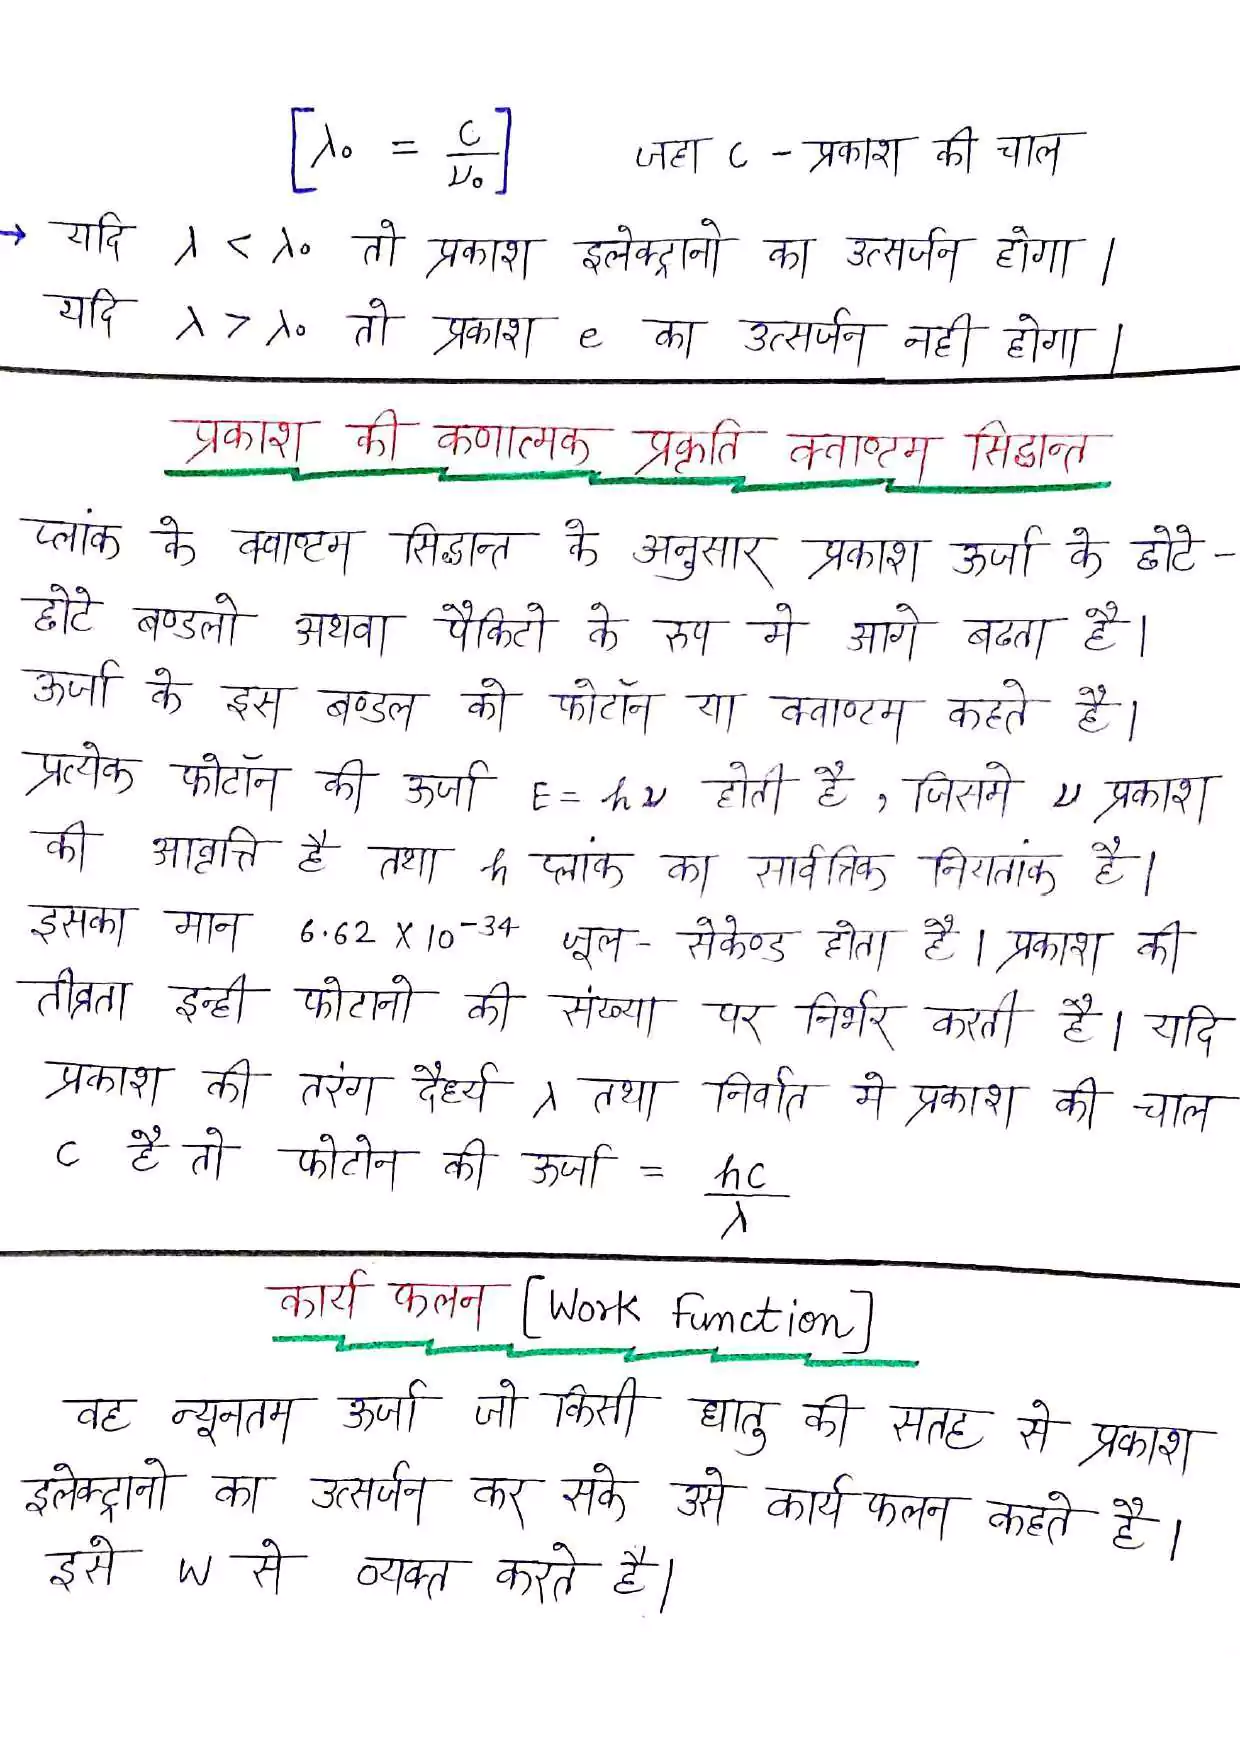 [λ₀ = c/ν₀] जहा c - प्रकाश की चाल
→ यदि λ < λ₀ तो प्रकाश इलेक्ट्रानो का उत्सर्जन होगा।
यदि λ > λ₀ तो प्रकाश e का उत्सर्जन नही होगा।
प्रकाश की कणात्मक प्रकृति क्वाण्टम सिद्धान्त
प्लांक के क्वाण्टम सिद्धान्त के अनुसार प्रकाश ऊर्जा के छोटे -
छोटे बण्डलो अथवा पैकिटो के रुप मे आगे बढता है।
ऊर्जा के इस बण्डल को फोटॉन या क्वाण्टम कहते है।
प्रत्येक फोटॉन की ऊर्जा E = hν होती है, जिसमे ν प्रकाश
की आवृत्ति है तथा h प्लांक का सार्वत्रिक नियतांक है।
इसका मान 6.62 × 10⁻³⁴ जूल - सेकेण्ड होता है। प्रकाश की
तीव्रता इन्ही फोटानो की संख्या पर निर्भर करती है। यदि
प्रकाश की तरंग दैर्ध्य λ तथा निर्वात मे प्रकाश की चाल
c है तो फोटोन की ऊर्जा = hc/λ
कार्य फलन [Work function]
वह न्यूनतम ऊर्जा जो किसी धातु की सतह से प्रकाश
इलेक्ट्रानो का उत्सर्जन कर सके उसे कार्य फलन कहते है।
इसे W से व्यक्त करते है।